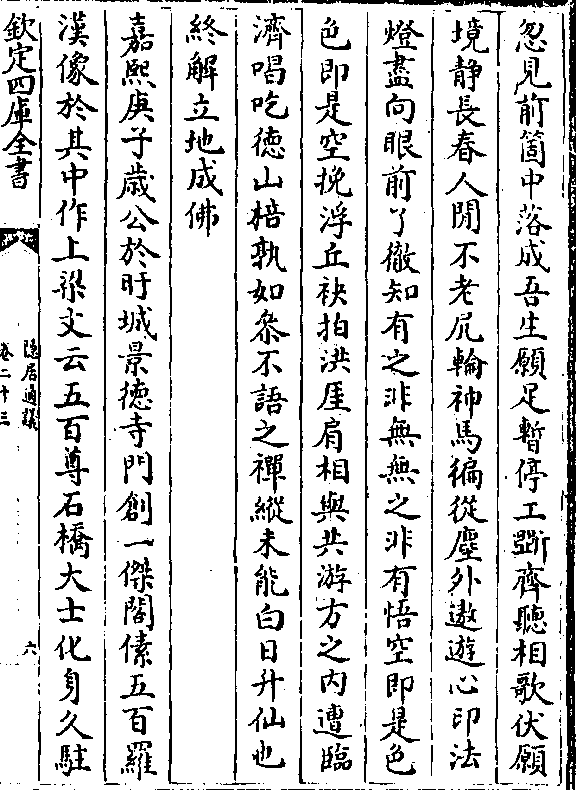 忽見前箇中落成吾生願足暫停工斵齊聽相歌伏願
境靜長春人閒不老尻輪神馬徧從塵外遨遊心印法
燈盡向眼前了徹知有之非無無之非有悟空即是色
色即是空挽浮丘袂拍洪厓肩相與共游方之内遭臨
濟喝吃徳山棓孰如叅不語之禪縱未能白日升仙也
終解立地成佛
嘉熙庚子歳公於盱城景徳寺門創一傑閣傃五百羅
漢像於其中作上梁文云五百尊石橋大士化身久駐
欽定四庫全書
隱居通議
卷二十三
六